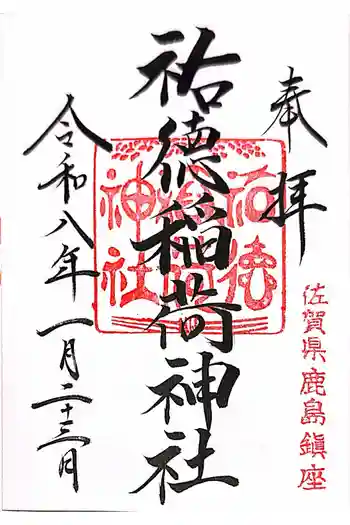 奉拝
佐賀県鹿島鎮座
祐徳稲荷神社
祐徳
稲荷
神社
令和八年一月二十三日